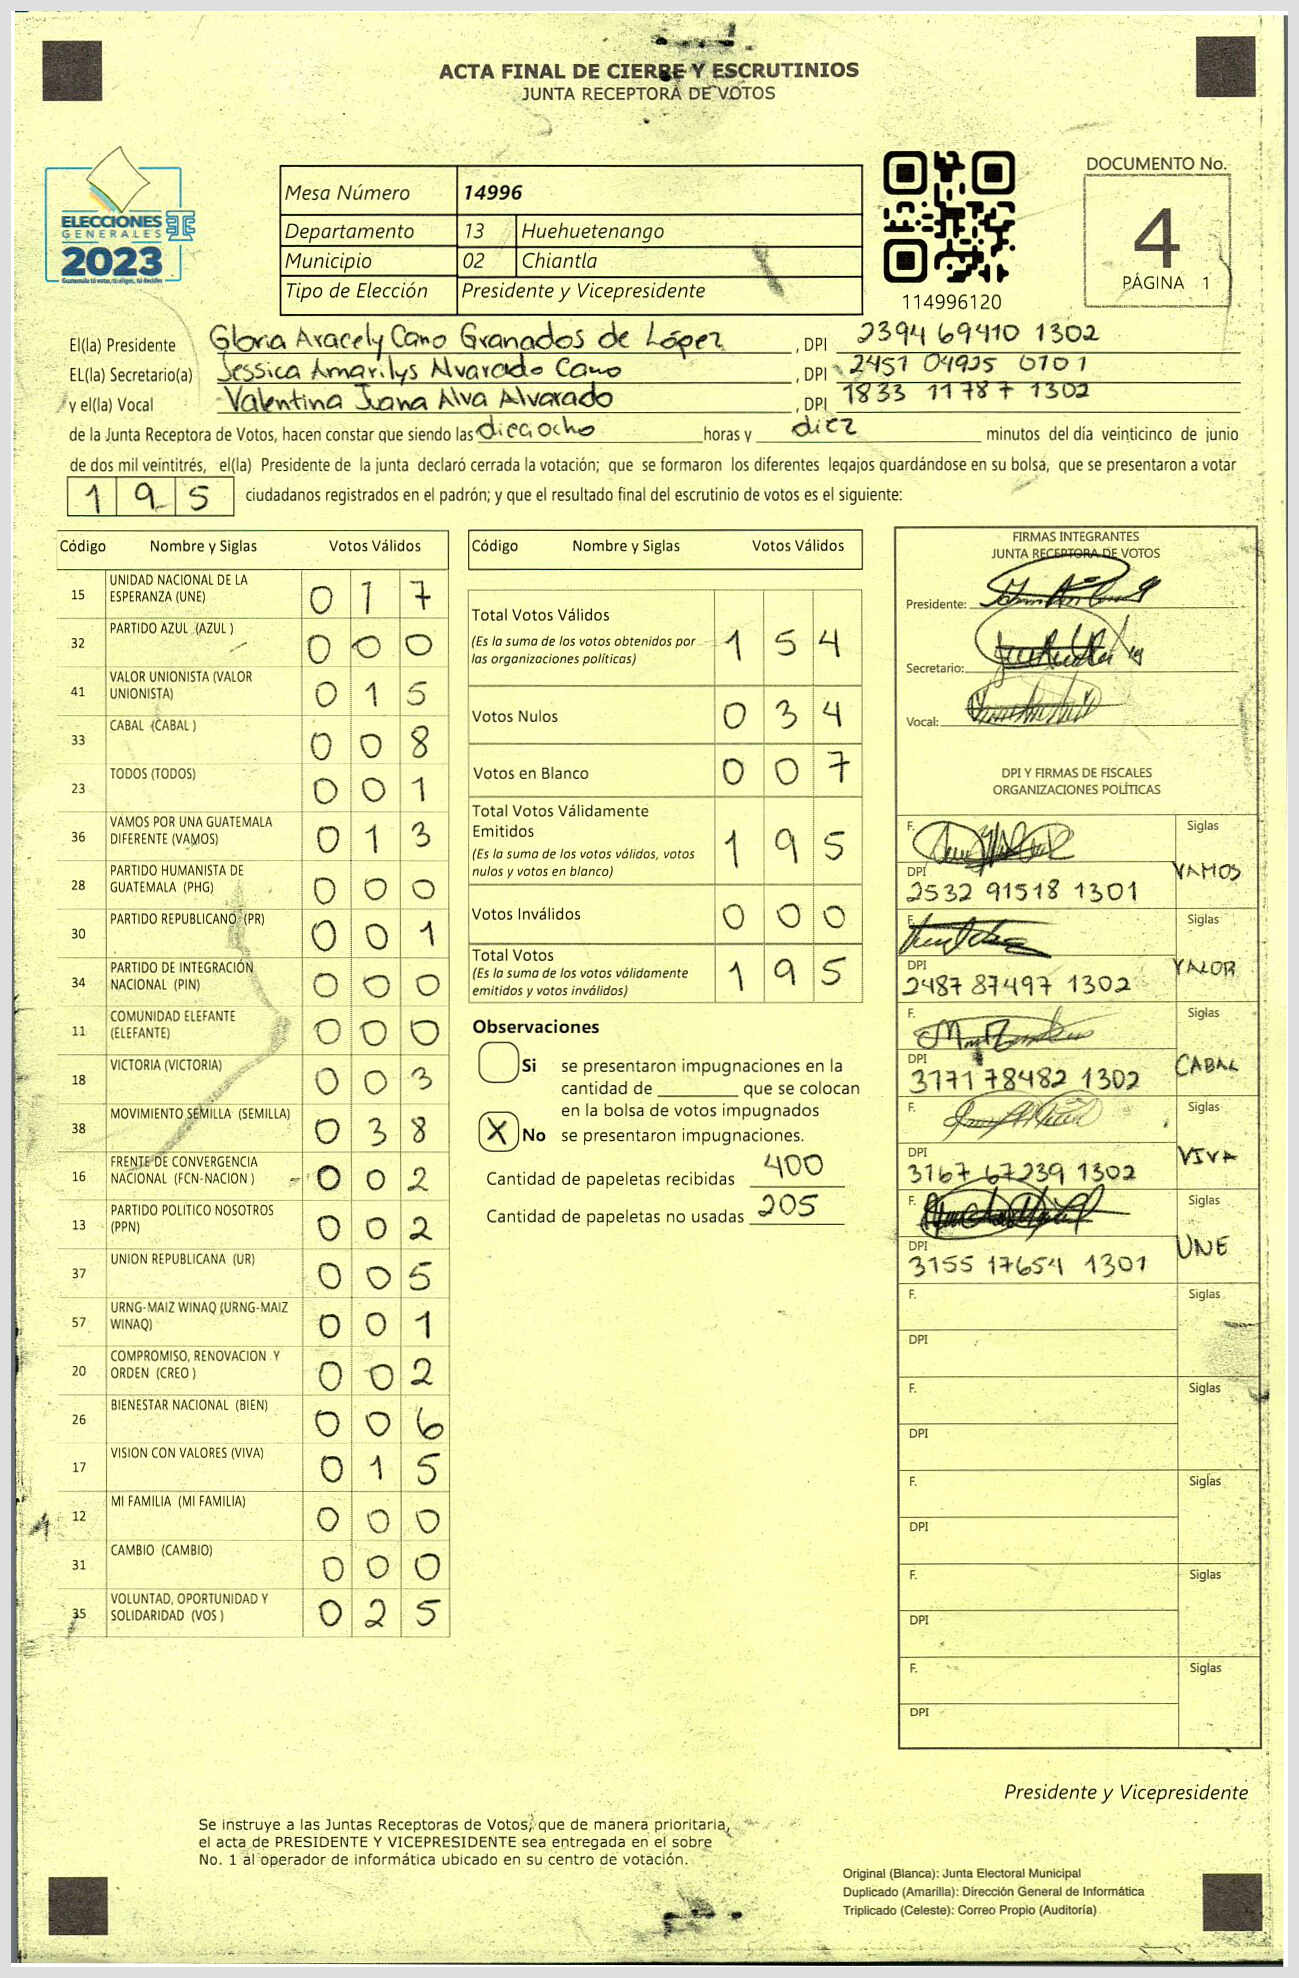 ACTA FINAL DE CIERRE Y ESCRUTINIOS
JUNTA RECEPTORA DE VOTOS
ELECCIONES
GENERALES
2023
Guatemala tú votas, tú eliges, tú decides
Mesa Número 14996
Departamento 13 Huehuetenango
Municipio 02 Chiantla
Tipo de Elección Presidente y Vicepresidente
114996120
DOCUMENTO No.
4
PÁGINA 1
El(la) Presidente Gloria Aracely Cano Granados de López, DPI 2394 69410 1302
EL(la) Secretario(a) Jessica Amarilys Alvarado Cano, DPI 2451 04925 0101
y el(la) Vocal Valentina Juana Alva Alvarado, DPI 1833 11787 1302
de la Junta Receptora de Votos, hacen constar que siendo las dieciocho horas y diez minutos del día veinticinco de junio
de dos mil veintitrés, el(la) Presidente de la junta declaró cerrada la votación; que se formaron los diferentes legajos guardándose en su bolsa, que se presentaron a votar
195 ciudadanos registrados en el padrón; y que el resultado final del escrutinio de votos es el siguiente:
Código Nombre y Siglas Votos Válidos
15 UNIDAD NACIONAL DE LA ESPERANZA (UNE) 017
32 PARTIDO AZUL (AZUL ) 000
41 VALOR UNIONISTA (VALOR UNIONISTA) 015
33 CABAL (CABAL ) 008
23 TODOS (TODOS) 001
36 VAMOS POR UNA GUATEMALA DIFERENTE (VAMOS) 013
28 PARTIDO HUMANISTA DE GUATEMALA (PHG) 000
30 PARTIDO REPUBLICANO (PR) 001
34 PARTIDO DE INTEGRACIÓN NACIONAL (PIN) 000
11 COMUNIDAD ELEFANTE (ELEFANTE) 000
18 VICTORIA (VICTORIA) 003
38 MOVIMIENTO SEMILLA (SEMILLA) 038
16 FRENTE DE CONVERGENCIA NACIONAL (FCN-NACION ) 002
13 PARTIDO POLITICO NOSOTROS (PPN) 002
37 UNION REPUBLICANA (UR) 005
57 URNG-MAIZ WINAQ (URNG-MAIZ WINAQ) 001
20 COMPROMISO, RENOVACION Y ORDEN (CREO ) 002
26 BIENESTAR NACIONAL (BIEN) 006
17 VISION CON VALORES (VIVA) 015
12 MI FAMILIA (MI FAMILIA) 000
31 CAMBIO (CAMBIO) 000
35 VOLUNTAD, OPORTUNIDAD Y SOLIDARIDAD (VOS ) 025
Código Nombre y Siglas Votos Válidos
Total Votos Válidos 154
(Es la suma de los votos obtenidos por
las organizaciones políticas)
Votos Nulos 034
Votos en Blanco 007
Total Votos Válidamente
Emitidos 195
(Es la suma de los votos válidos, votos
nulos y votos en blanco)
Votos Inválidos 000
Total Votos 195
(Es la suma de los votos válidamente
emitidos y votos inválidos)
Observaciones
Si se presentaron impugnaciones en la
cantidad de ________ que se colocan
en la bolsa de votos impugnados
X No se presentaron impugnaciones.
Cantidad de papeletas recibidas 400
Cantidad de papeletas no usadas 205
FIRMAS INTEGRANTES
JUNTA RECEPTORA DE VOTOS
Presidente:
Secretario:
Vocal:
DPI Y FIRMAS DE FISCALES
ORGANIZACIONES POLÍTICAS
F. Siglas
DPI VAMOS
2532 91518 1301
F. Siglas
DPI VALOR
2487 87497 1302
F. Siglas
DPI CABAL
3171 78482 1302
F. Siglas
DPI VIVA
3167 67239 1302
F. Siglas
DPI UNE
3155 17654 1301
F. Siglas
DPI
F. Siglas
DPI
F. Siglas
DPI
F. Siglas
DPI
F. Siglas
DPI
Presidente y Vicepresidente
Se instruye a las Juntas Receptoras de Votos, que de manera prioritaria,
el acta de PRESIDENTE Y VICEPRESIDENTE sea entregada en el sobre
No. 1 al operador de informática ubicado en su centro de votación.
Original (Blanca): Junta Electoral Municipal
Duplicado (Amarilla): Dirección General de Informática
Triplicado (Celeste): Correo Propio (Auditoría)